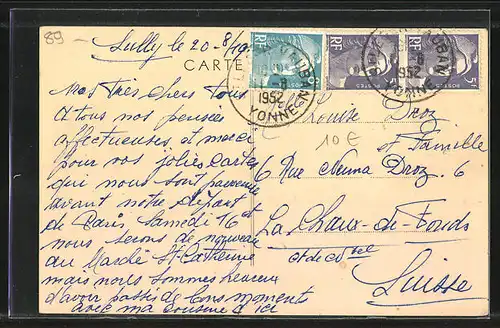 89
Sully le 20-8/19
CARTE
RF
RF
RF
VAUBAN
1952
YONNE
VAUBAN
1952
YONNE
Mes Très chers Tous
A tous nos pensées
affectueuses et merci
pour vos jolies cartes
qui nous sont parvenues
avant notre départ
de Paris Samedi 16 et
nous serons de nouveau
au Marché Ste Catherine
mais nous sommes heureux
d'avoir passés de bons moments
avec ma cousine d'ici
Louise Droz
10 €
et Famille
6 Rue Numa Droz 6
La Chaux-de-Fonds
Ct de Ntel
Suisse